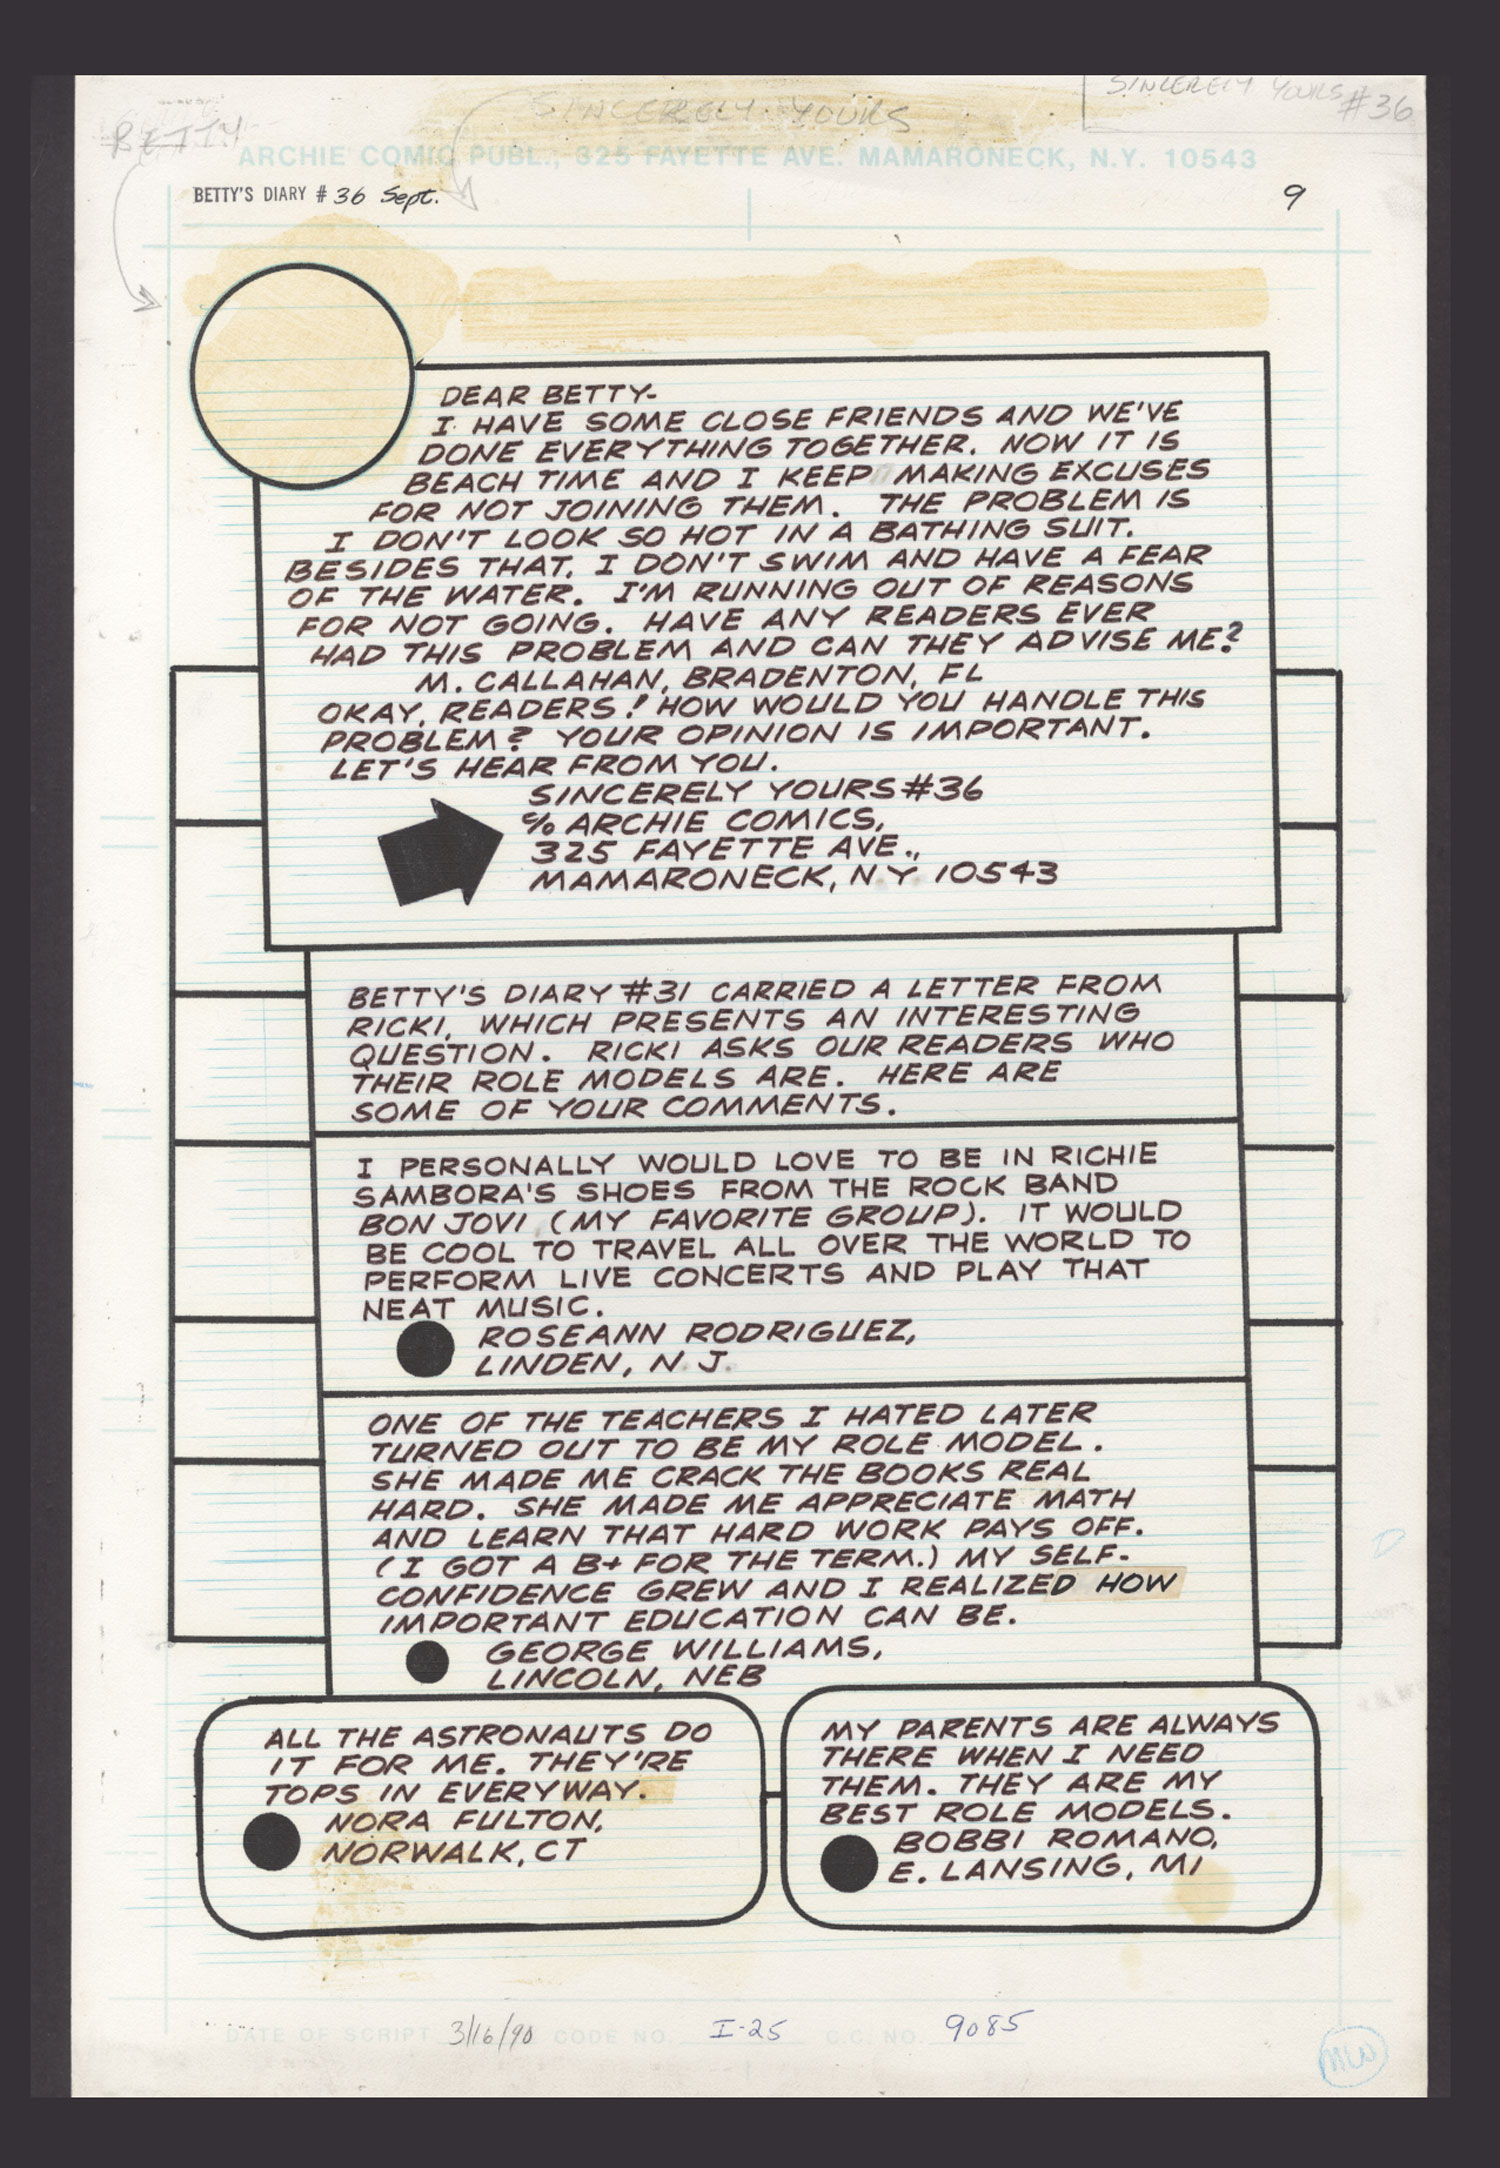 SINCERELY YOURS #36
SINCERELY YOURS
BETTY
ARCHIE COMIC PUBL., 325 FAYETTE AVE. MAMARONECK, N.Y. 10543
BETTY'S DIARY # 36 Sept.
9
DEAR BETTY-
I HAVE SOME CLOSE FRIENDS AND WE'VE
DONE EVERYTHING TOGETHER. NOW IT IS
BEACH TIME AND I KEEP MAKING EXCUSES
FOR NOT JOINING THEM. THE PROBLEM IS
I DON'T LOOK SO HOT IN A BATHING SUIT.
BESIDES THAT, I DON'T SWIM AND HAVE A FEAR
OF THE WATER. I'M RUNNING OUT OF REASONS
FOR NOT GOING. HAVE ANY READERS EVER
HAD THIS PROBLEM AND CAN THEY ADVISE ME?
M. CALLAHAN, BRADENTON, FL
OKAY, READERS! HOW WOULD YOU HANDLE THIS
PROBLEM? YOUR OPINION IS IMPORTANT.
LET'S HEAR FROM YOU.
SINCERELY YOURS #36
c/o ARCHIE COMICS,
325 FAYETTE AVE.,
MAMARONECK, N.Y. 10543
BETTY'S DIARY #31 CARRIED A LETTER FROM
RICKI, WHICH PRESENTS AN INTERESTING
QUESTION. RICKI ASKS OUR READERS WHO
THEIR ROLE MODELS ARE. HERE ARE
SOME OF YOUR COMMENTS.
I PERSONALLY WOULD LOVE TO BE IN RICHIE
SAMBORA'S SHOES FROM THE ROCK BAND
BON JOVI (MY FAVORITE GROUP). IT WOULD
BE COOL TO TRAVEL ALL OVER THE WORLD TO
PERFORM LIVE CONCERTS AND PLAY THAT
NEAT MUSIC.
ROSEANN RODRIGUEZ,
LINDEN, N.J.
ONE OF THE TEACHERS I HATED LATER
TURNED OUT TO BE MY ROLE MODEL.
SHE MADE ME CRACK THE BOOKS REAL
HARD. SHE MADE ME APPRECIATE MATH
AND LEARN THAT HARD WORK PAYS OFF.
(I GOT A B+ FOR THE TERM.) MY SELF-
CONFIDENCE GREW AND I REALIZED HOW
IMPORTANT EDUCATION CAN BE.
GEORGE WILLIAMS,
LINCOLN, NEB
ALL THE ASTRONAUTS DO
IT FOR ME. THEY'RE
TOPS IN EVERYWAY.
NORA FULTON,
NORWALK, CT
MY PARENTS ARE ALWAYS
THERE WHEN I NEED
THEM. THEY ARE MY
BEST ROLE MODELS.
BOBBI ROMANO,
E. LANSING, MI
DATE OF SCRIPT 3/16/90 CODE NO. I-25 C.C. NO. 9085
MW